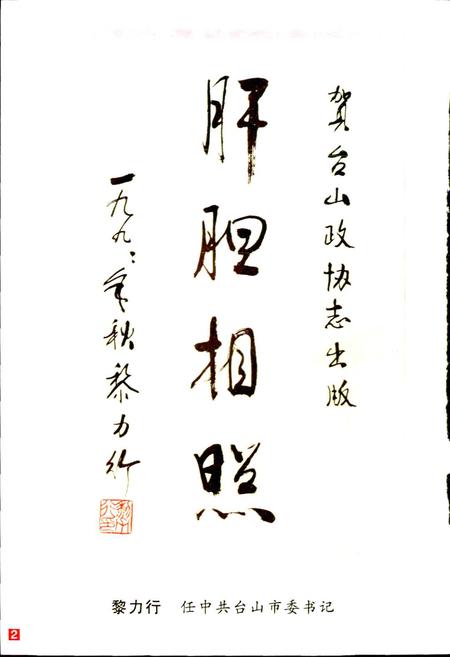 贺台山政协志出版
肝胆相照
一九九二年秋黎力行
黎力行 任中共台山市委书记
2